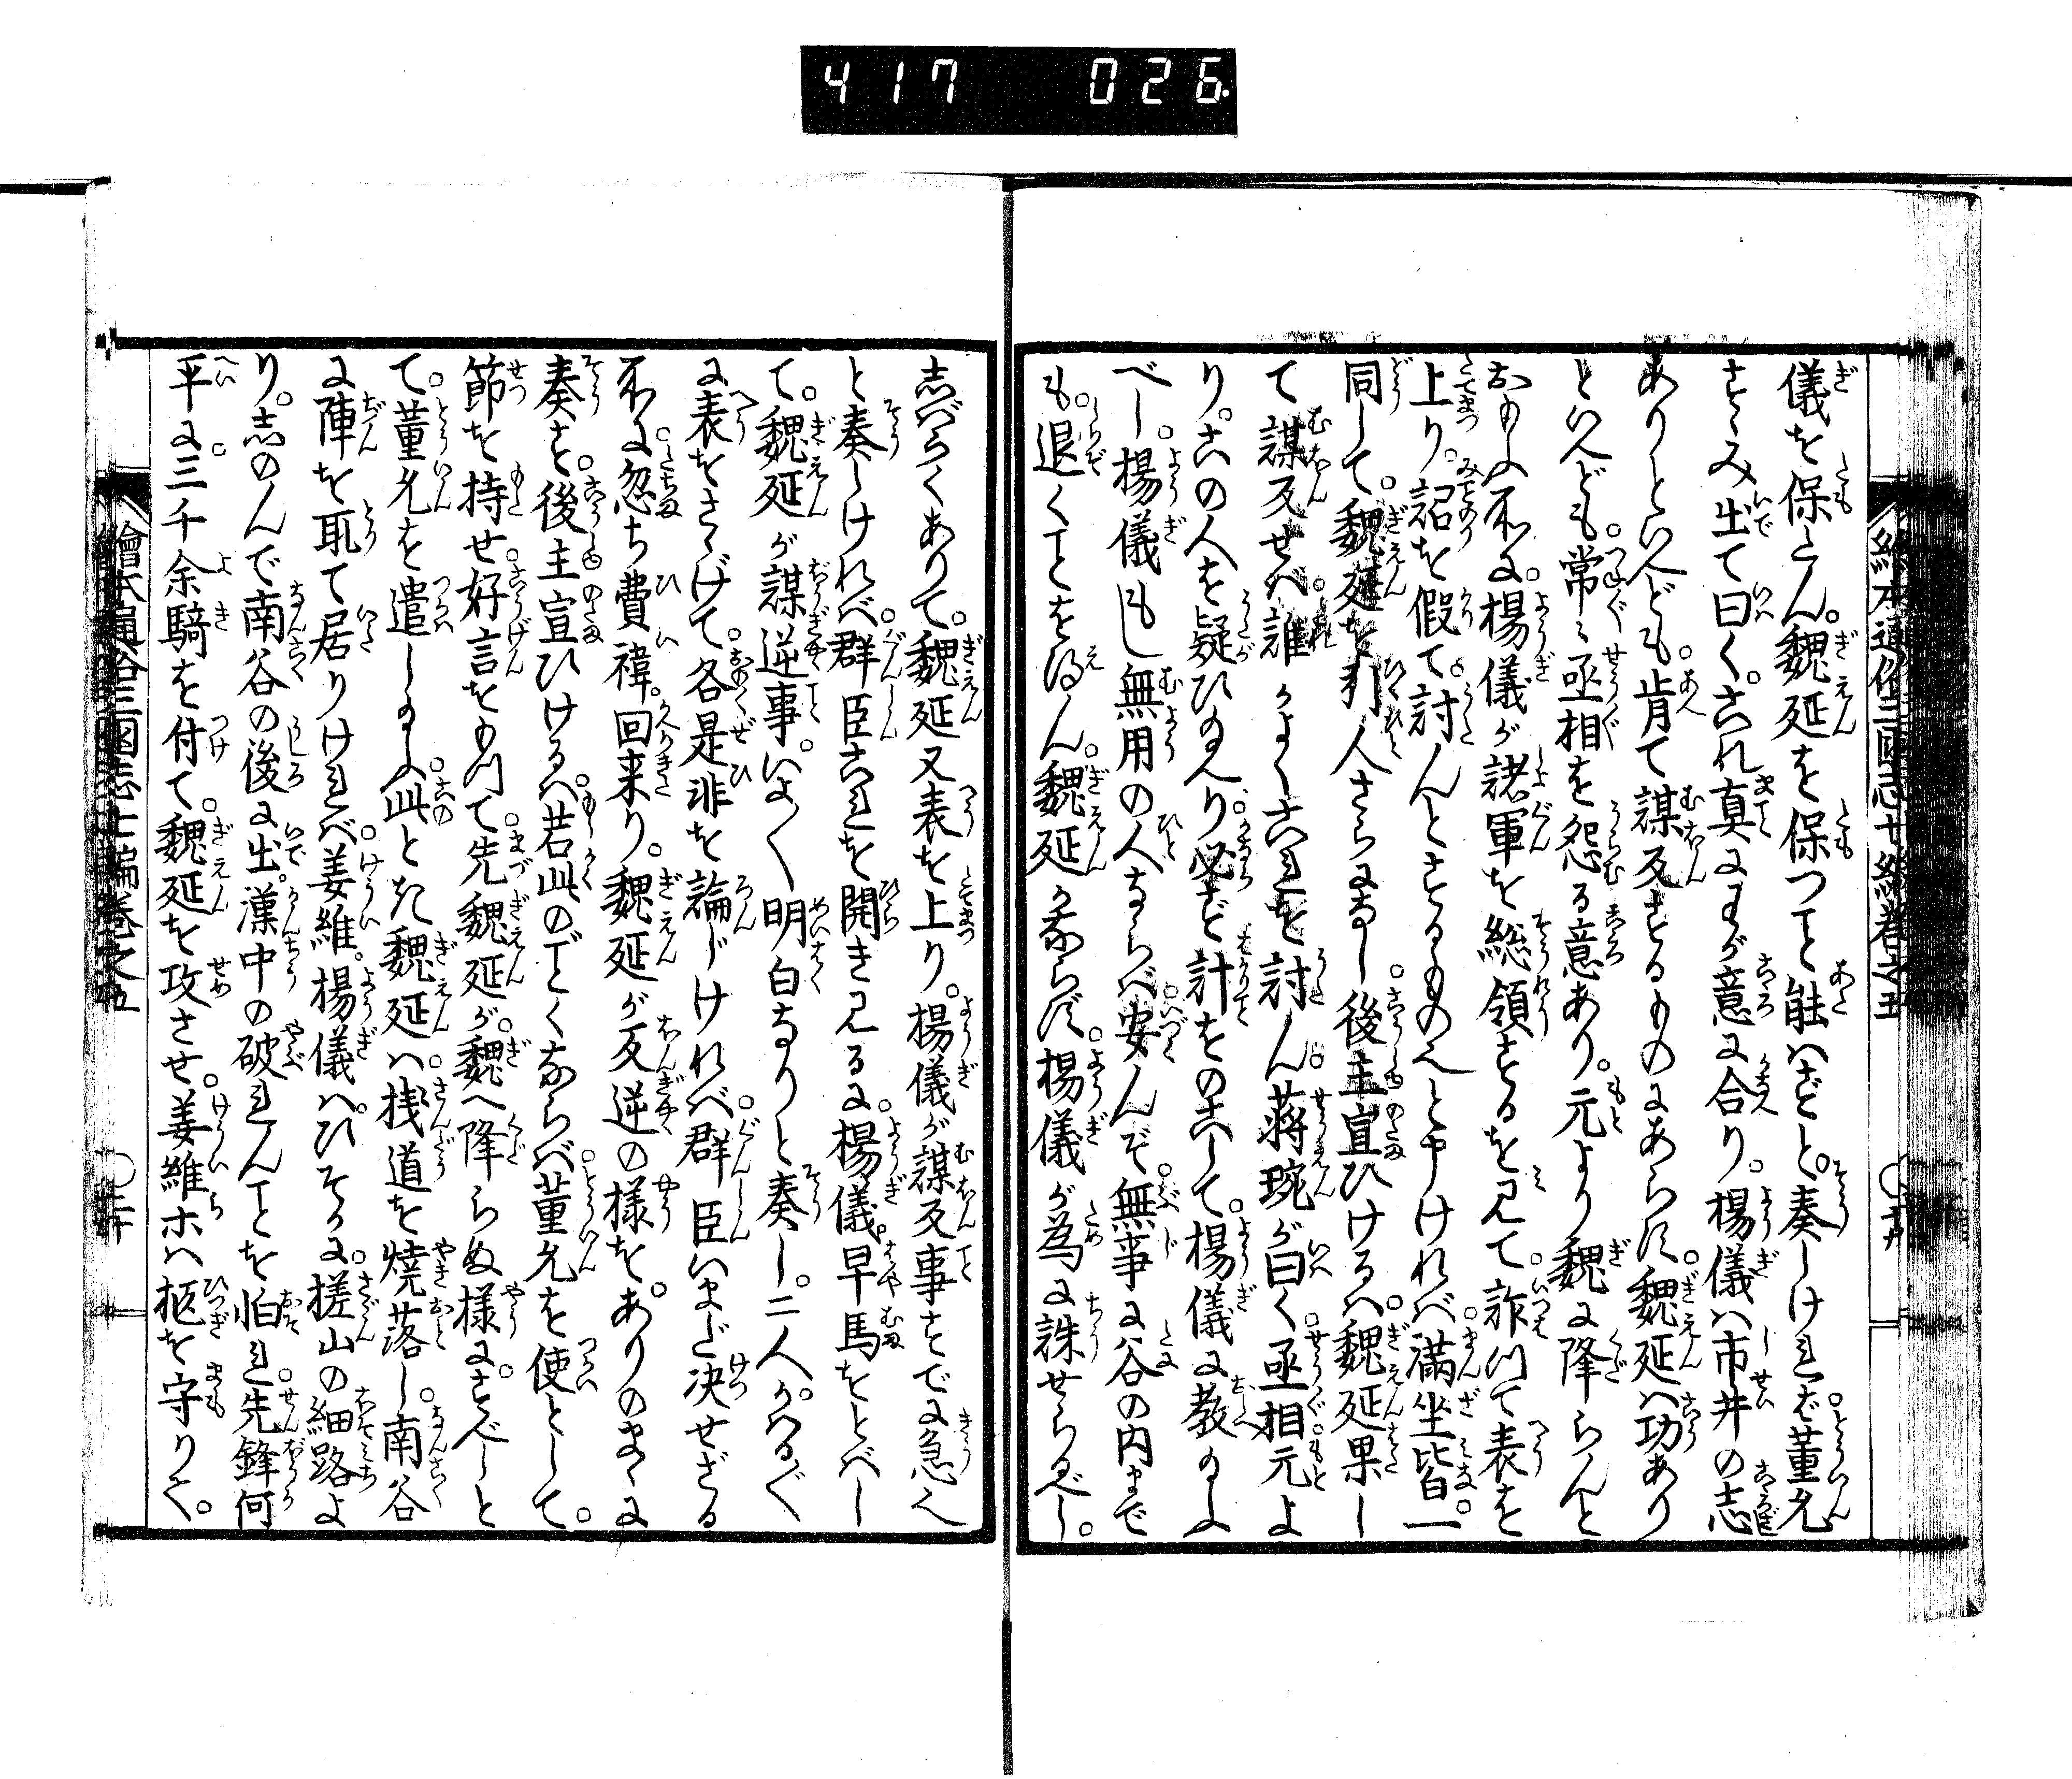 417 026
儀を保たん。魏延を保つこと能はずと。奏しければ。董允
すゝみ出て曰く。これ真にわが意に合り。楊儀ハ市井の志
ありといへども。肯て謀反するものにあらず。魏延ハ功あり
といへども。常に丞相を怨る意あり。元より魏に降らんと
おもふ所に。楊儀が諸軍を総領するを見て。詐つて表を
上り。詔を假て。討んとするものへと申ければ。満坐皆。一
同して。魏延を引人さらになし。後主宣ひけるハ。魏延果し
て謀反せバ。誰かよくこれを討ん。蒋琬が曰く。丞相元よ
り。この人を疑ひ給へり。必ず計をのこして。楊儀に教給ふ
べし。楊儀もし無用の人ならバ。安んぞ。無事に谷の内まで
も。退くことを得ん。魏延かならず。楊儀が為に誅せらるべし。
志ばらくありて。魏延又表を上り。楊儀が謀反事すでに急へ
と奏しけれバ。群臣これを開き見るに。楊儀。早馬をとばし
て。魏延が謀逆事。いよ〱明白なりと奏し。二人がハる〲
に表をさゝげて。各是非を論じけれバ。群臣いまだ決せざる
所に。忽ち費禕。回来り。魏延が反逆の様を。ありのまゝに
奏す。後主宣ひけるハ。若此のごとくならバ。董允を使として。
節を持せ。好言をもつて。先魏延が。魏へ降らぬ様に。すべしと
て。董允を遣しのふ。此とき魏延ハ。桟道を焼落し。南谷
に陣を取て居りけれバ。姜維。楊儀ハ。ひそかに。搓山の細路よ
り。志のんで南谷の後に出。漢中の破れんことを怕れ。先鋒何
平に。三千余騎を付て。魏延を攻させ。姜維ホハ柩を守りく。
繪本通俗三國志七編巻之五